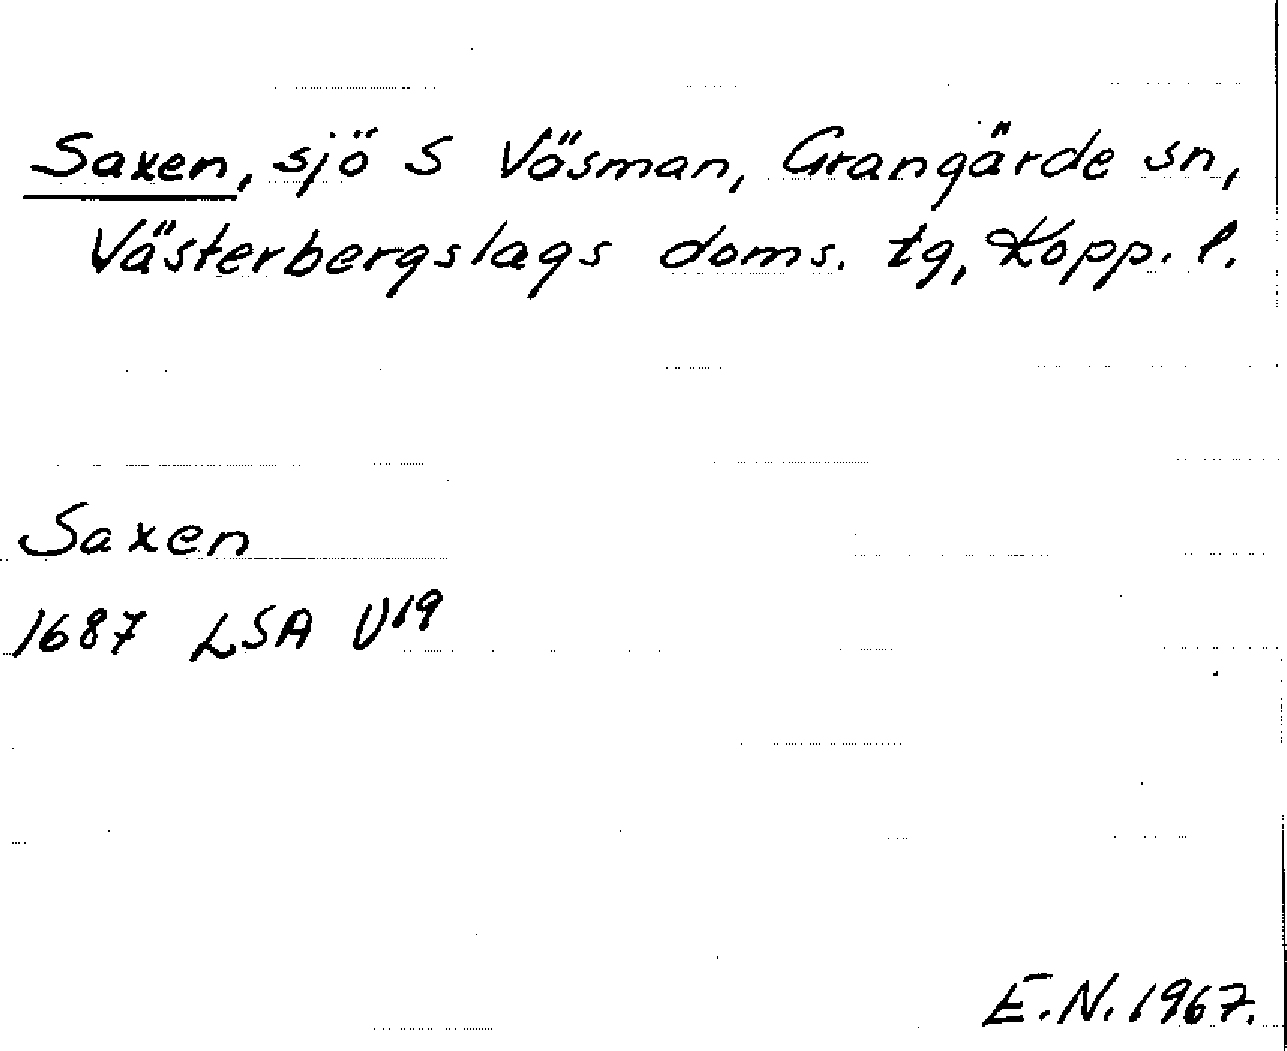 Saxen, sjö S Väsman, Grangärde sn,
Västerbergslags doms. tg, Kopp. l.
Saxen
1687 LSA U19
E.N. 1967.